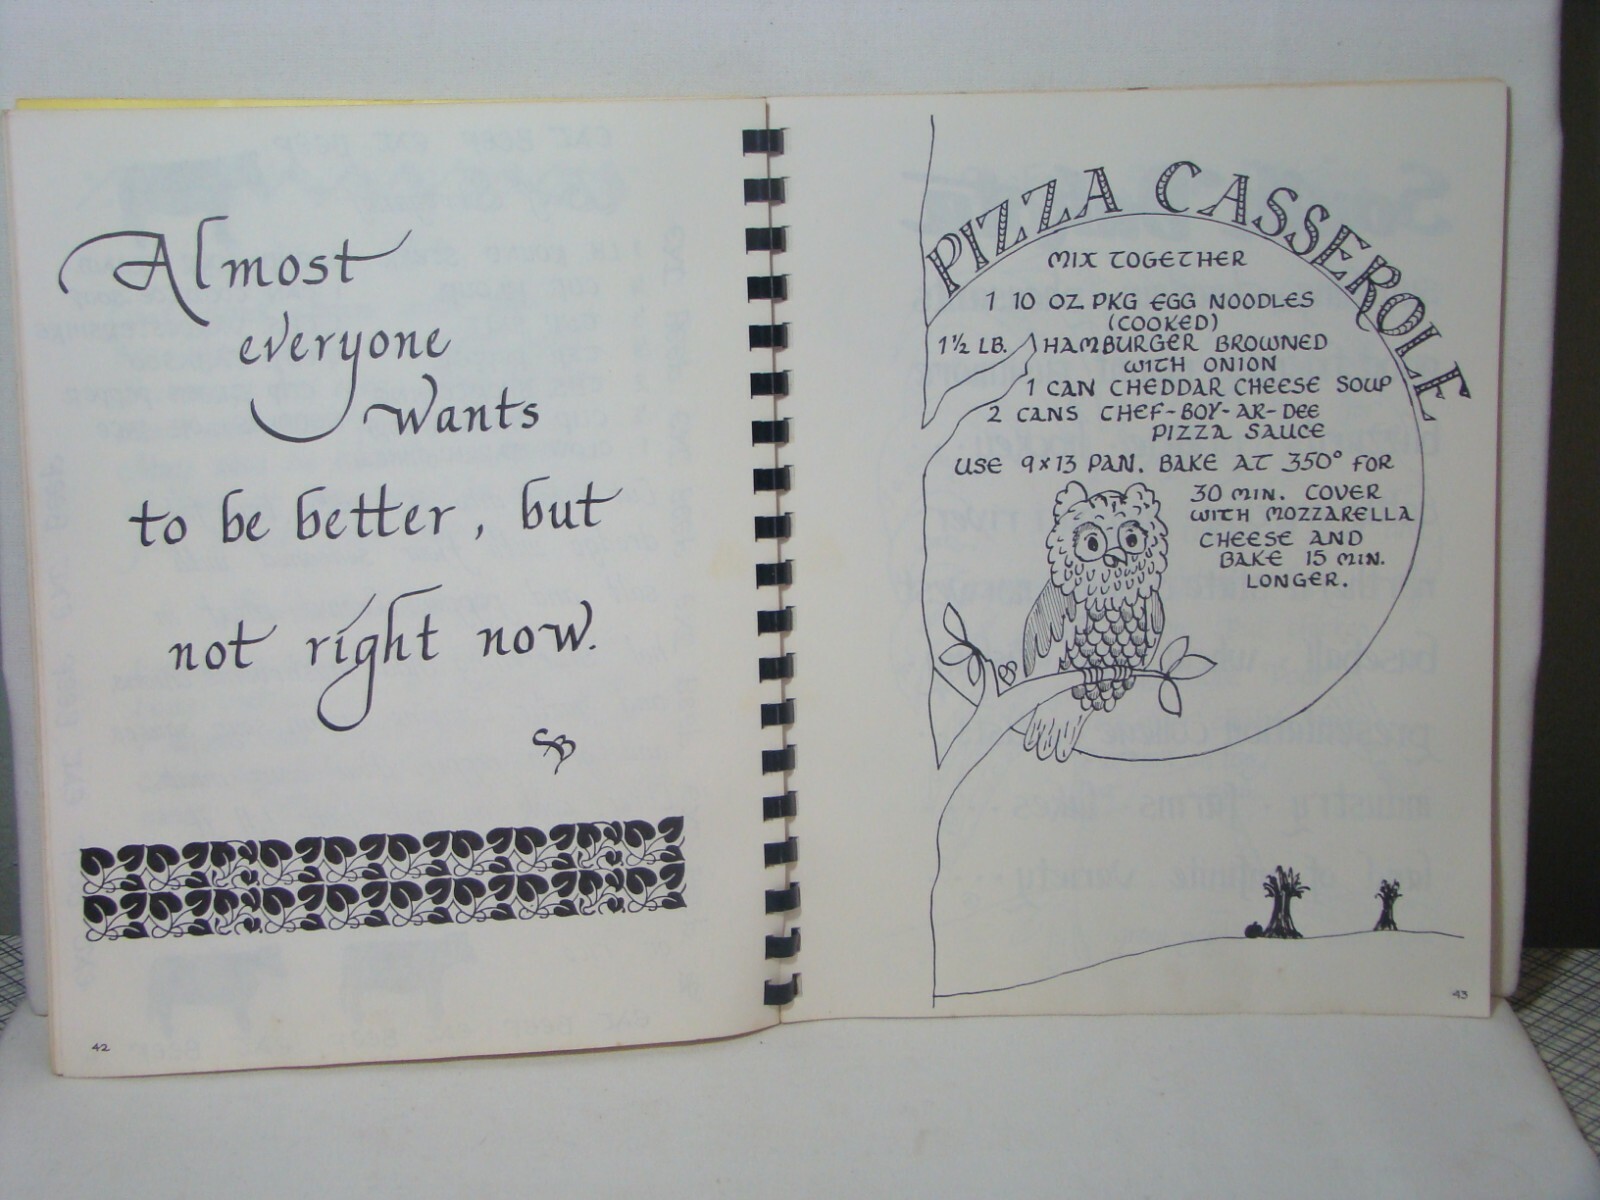 Almost
everyone
wants
to be better, but
not right now.
SB
42
PIZZA CASSEROLE
MIX TOGETHER
1 10 OZ PKG EGG NOODLES
(COOKED)
1½ LB. HAMBURGER BROWNED
WITH ONION
1 CAN CHEDDAR CHEESE SOUP
2 CANS CHEF-BOY-AR-DEE
PIZZA SAUCE
USE 9x13 PAN. BAKE AT 350° FOR
30 MIN. COVER
WITH MOZZARELLA
CHEESE AND
BAKE 15 MIN.
LONGER.
43